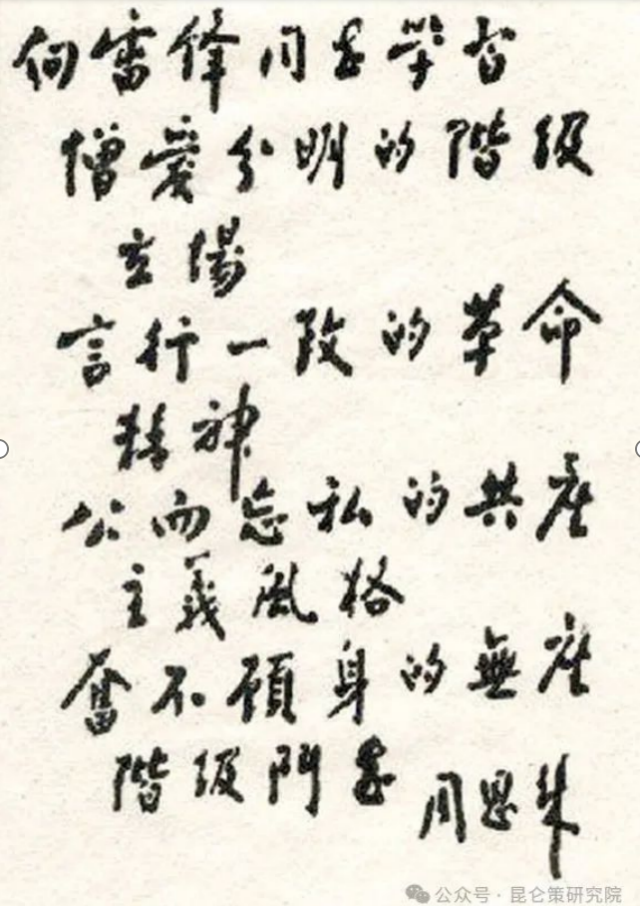 向雷锋同志学习
憎爱分明的階级
立場
言行一致的革命
精神
公而忘私的共产
主義風格
奮不顾身的無产
階级鬥志 周恩来
公众号·昆仑策研究院